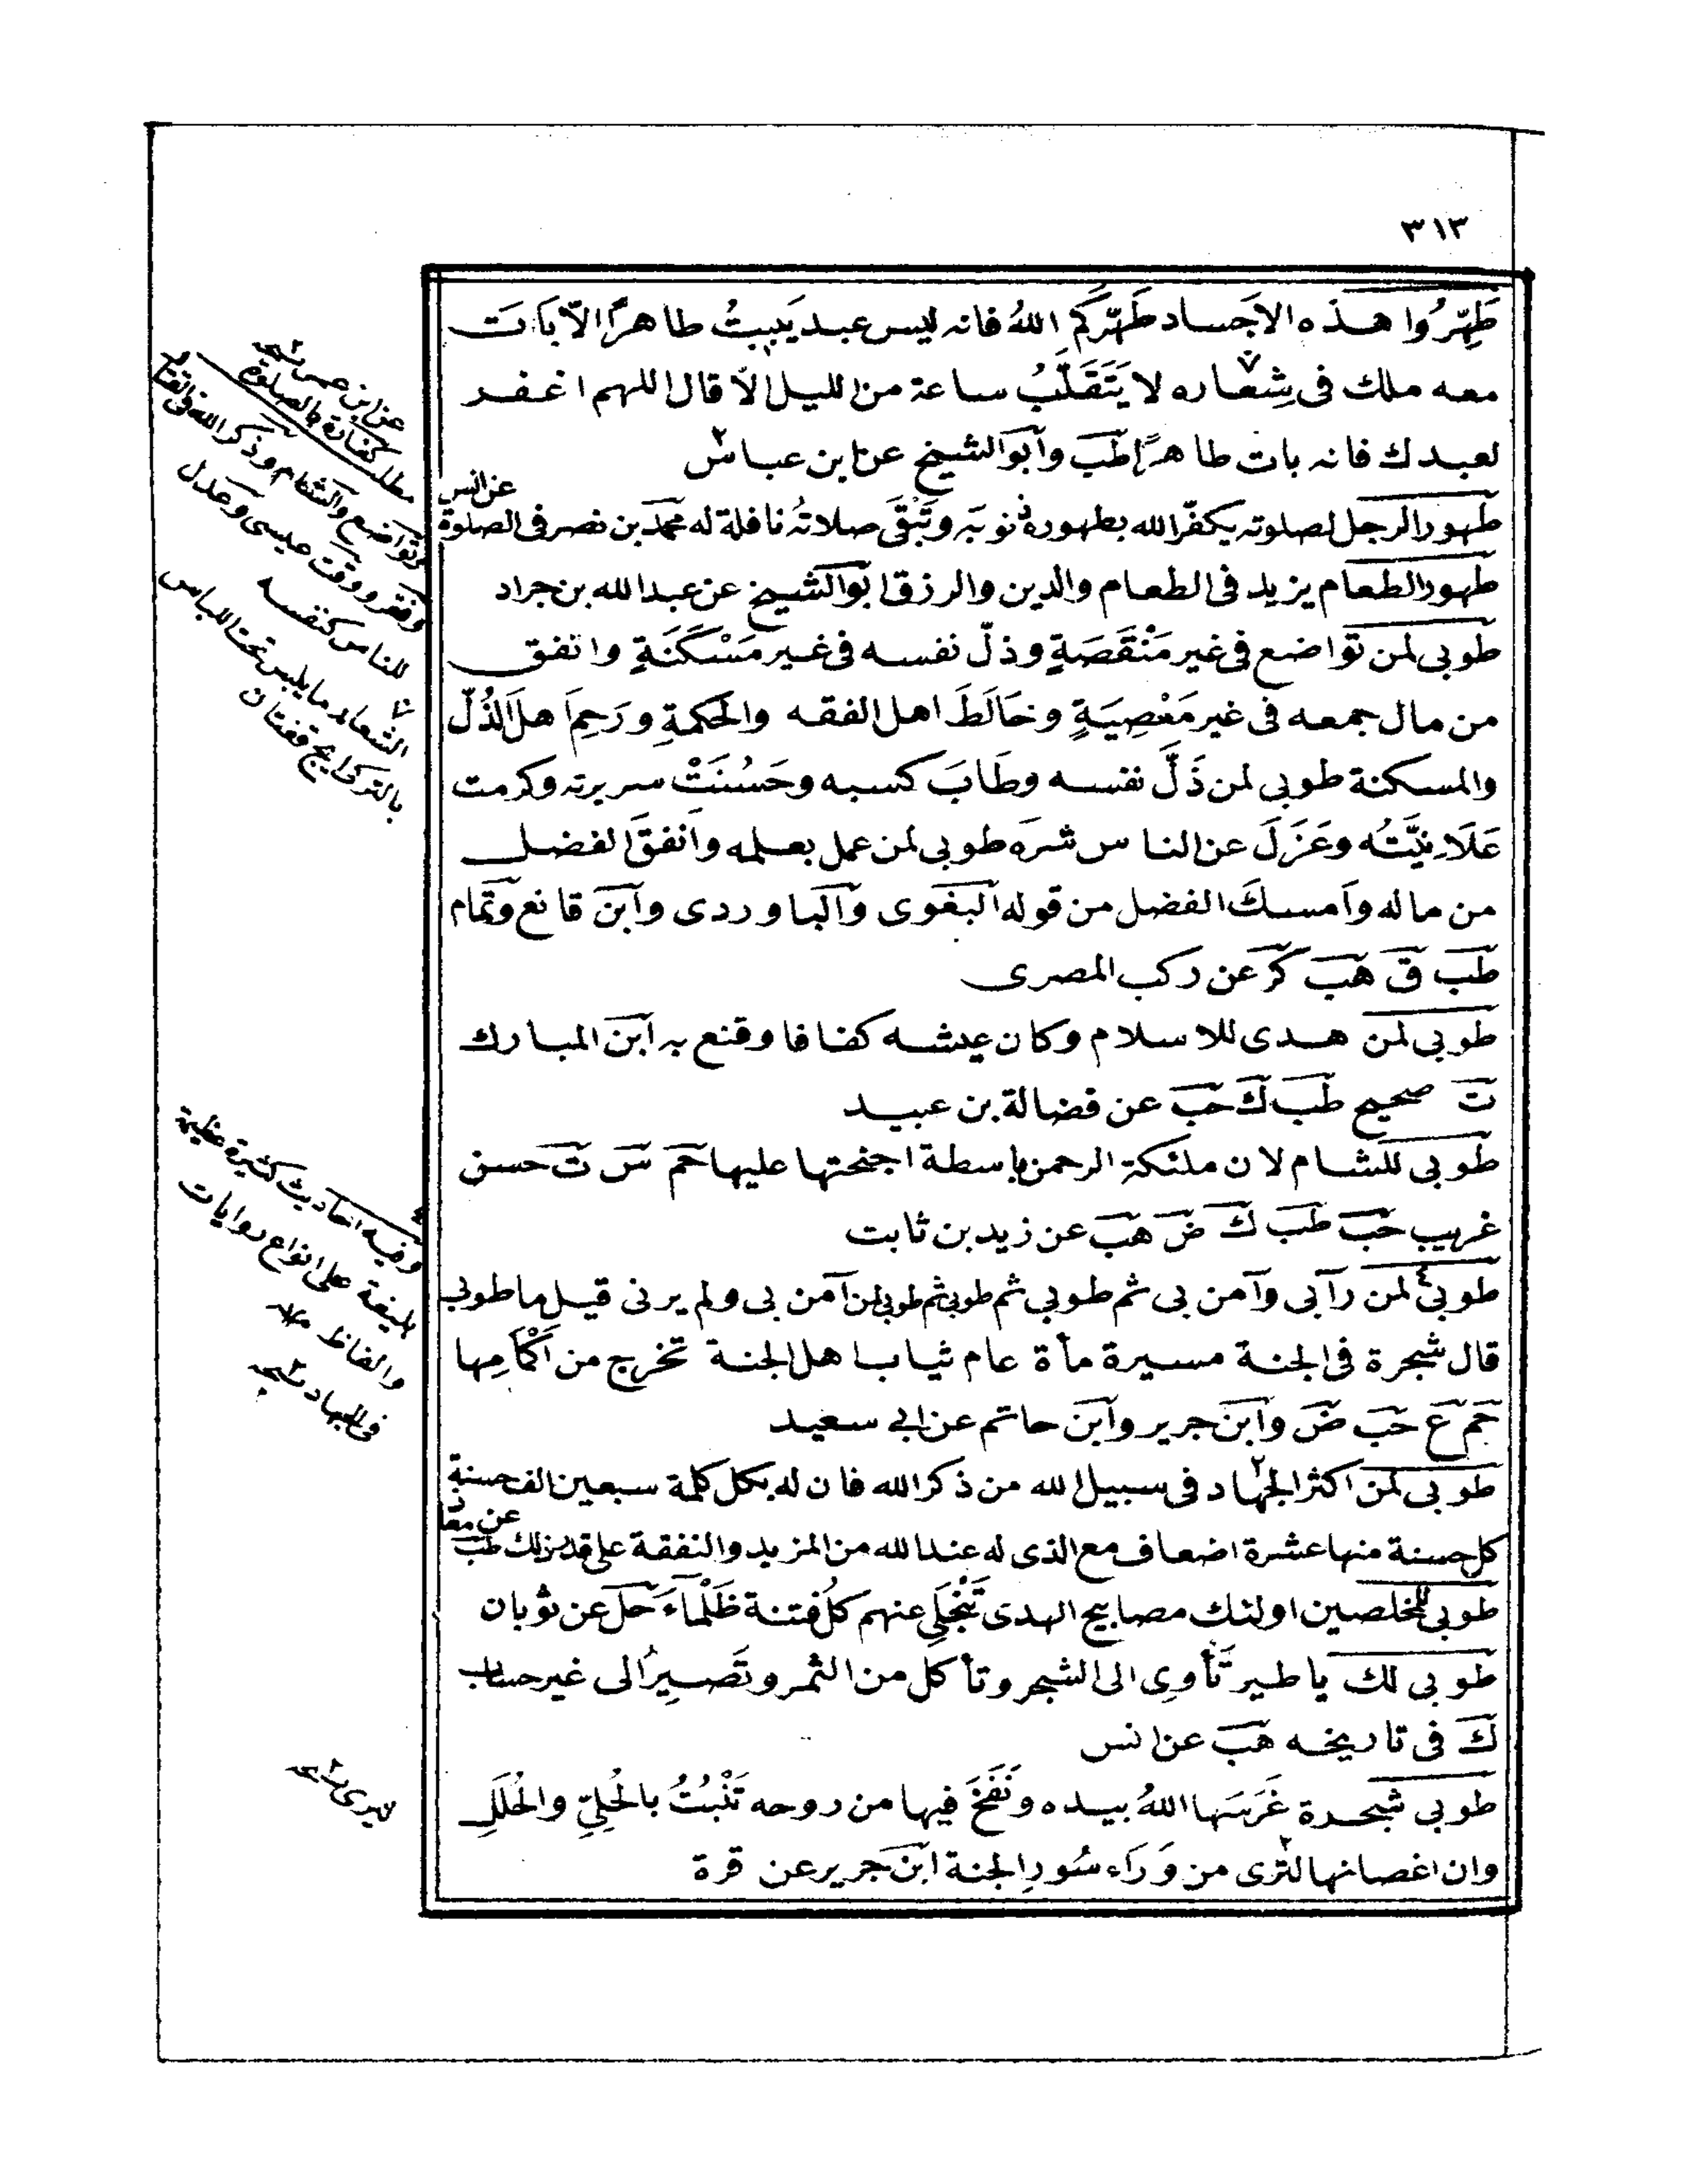 ٣١٣
طَهِّرُوا هذه الاَجساد طَهَّرَكُم اللهُ فانه ليس عبد يَبِيتُ طاهرًا الاّ بَاتَ
معه ملك فى شِعاره لا يَتَقَلَّبُ ساعة من الليل الاّ قال اللهم اغفر
لعبدك فانه بات طاهرًا طب وابو الشيخ عن ابن عباس
طهور الرجل لصلوته يكفّر الله بطهوره ذنوبَه وتَبْقَى صلاتُه نافلة له محمد بن نصر فى الصلوة عن انس
طهور الطعام يزيد فى الطعام والدين والرزق ابو الشيخ عن عبد الله بن جراد
طوبى لمن تواضع فى غير مَنْقَصَةٍ وذلّ نفسه فى غير مَسْكَنَةٍ وانفق
من مال جمعه فى غير مَعْصِيَةٍ وخَالَطَ اهل الفقه والحكمةِ ورَحِمَ اهلَ الذُّلّ
والمسكنة طوبى لمن ذَلَّ نفسه وطَابَ كسبه وحَسُنَتْ سريرته وكرمت
عَلَانِيَّتُه وعَزَلَ عن الناس شرَه طوبى لمن عمل بعلمه وانفقَ الفضل
من ماله واَمسكَ الفضل من قوله البغوى والباوردى وابن قانع وتمام
طب ق هب كر عن ركب المصرى
طوبى لمن هدى للاسلام وكان عيشه كفافا وقنع به ابن المبارك
ت صحيح طب ك حب عن فضالة بن عبيد
طوبى للشام لان ملئكة الرحمن باسطة اجنحتها عليها حم س ت حسن
غريب حب طب ك ض هب عن زيد بن ثابت
طوبى لمن رآنى وآمن بى ثم طوبى ثم طوبى ثم طوبى لمن آمن بى ولم يرنى قيل ما طوبى
قال شجرة فى الجنة مسيرة مأة عام ثياب اهل الجنة تخرج من اَكْمَامِها
حم ع حب ض وابن جرير وابن حاتم عن ابى سعيد
طوبى لمن اكثر الجهاد فى سبيل الله من ذكر الله فان له بكل كلمة سبعين الف حسنة
كل حسنة منها عشرة اضعاف مع الذى له عند الله من المزيد والنفقة على قدر ذلك طب عن معاذ
طوبى للمخلصين اولئك مصابيح الهدى تَنْجَلِى عنهم كلُ فتنة ظَلْمَاءَ حل عن ثوبان
طوبى لك يا طير تَأوِى الى الشجر وتأكل من الثمر وتَصِيرُ الى غير حساب
ك فى تاريخه هب عن انس
طوبى شجرة غَرَسَها اللهُ بيده ونَفَخَ فيها من روحه تَنْبُتُ بالحُلِيّ والحُلَلِ
وان اغصانها لتُرى من وَرَاء سُورِ الجنة ابن جرير عن قرة
عن ابن عمر نسخه
مطلب كفارة بالصلوة
وتواضع والشام وذكر الله فى القتال
وفقر ووقت عيسى وعدل
للناس كنفسه
الشعار ما يلبس تحت اللباس
بالتركى ايج قفتان
وفيه احاديث كثيرة عظيمة
على انواع روايات
والفاظ
فى الجهاد نسخه
ليرى نسخه